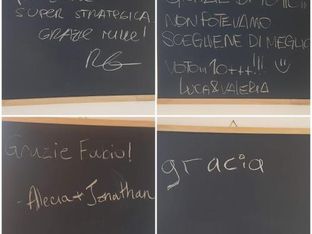 SUPER STRATEGICA
GRAZIE MILLE!
RG
NON POTEVAMO
SCEGLIERE DI MEGLIO
VOTO 10+++!!!
LUCA&VALERIA
Grazie Furio!
- Alecia + Jonathan
gracia